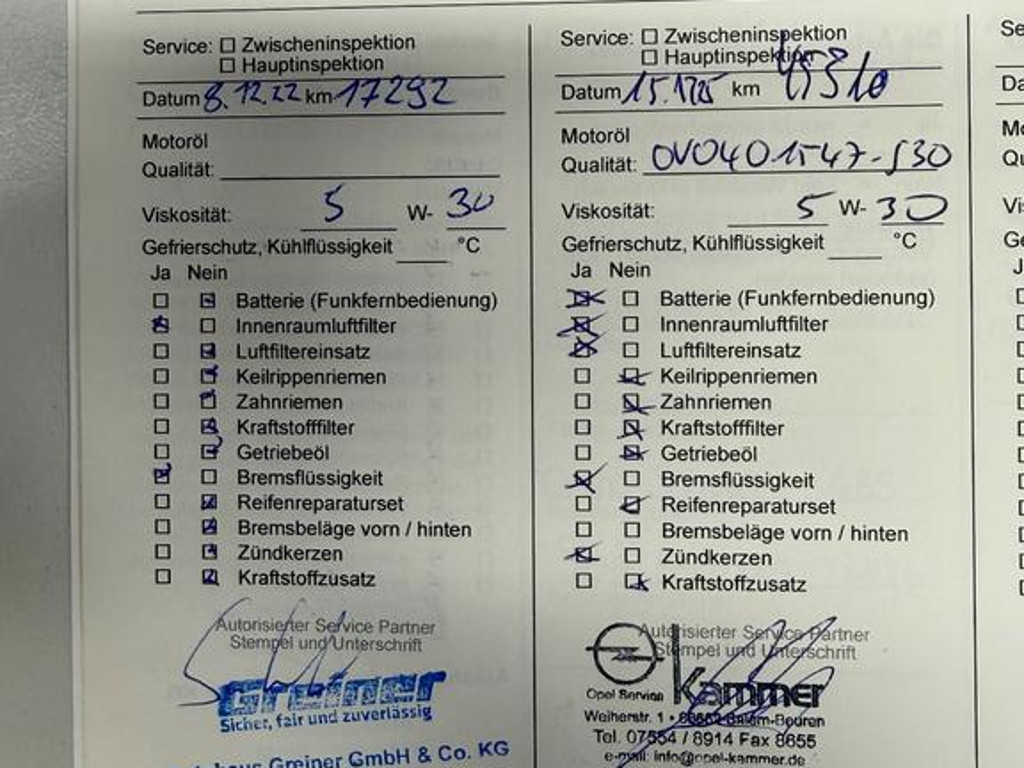 Service: ☐ Zwischeninspektion
☐ Hauptinspektion
Datum 8.12.22 km 17292
Motoröl
Qualität:
Viskosität: 5 W- 30
Gefrierschutz, Kühlflüssigkeit °C
Ja Nein
Batterie (Funkfernbedienung)
Innenraumluftfilter
Luftfiltereinsatz
Keilrippenriemen
Zahnriemen
Kraftstofffilter
Getriebeöl
Bremsflüssigkeit
Reifenreparaturset
Bremsbeläge vorn / hinten
Zündkerzen
Kraftstoffzusatz
Autorisierter Service Partner
Stempel und Unterschrift
Greiner
Sicher, fair und zuverlässig
Greiner GmbH & Co. KG
Service: ☐ Zwischeninspektion
☐ Hauptinspektion
Datum 15.1.25 km 45310
Motoröl
Qualität: OV0401547-S30
Viskosität: 5 W- 30
Gefrierschutz, Kühlflüssigkeit °C
Ja Nein
Batterie (Funkfernbedienung)
Innenraumluftfilter
Luftfiltereinsatz
Keilrippenriemen
Zahnriemen
Kraftstofffilter
Getriebeöl
Bremsflüssigkeit
Reifenreparaturset
Bremsbeläge vorn / hinten
Zündkerzen
Kraftstoffzusatz
Autorisierter Service Partner
Stempel und Unterschrift
Opel Service Kammer
Weiherstr. 1 •
Tel. 07554 / 8914 Fax 8655
e-mail: info@opel-kammer.de